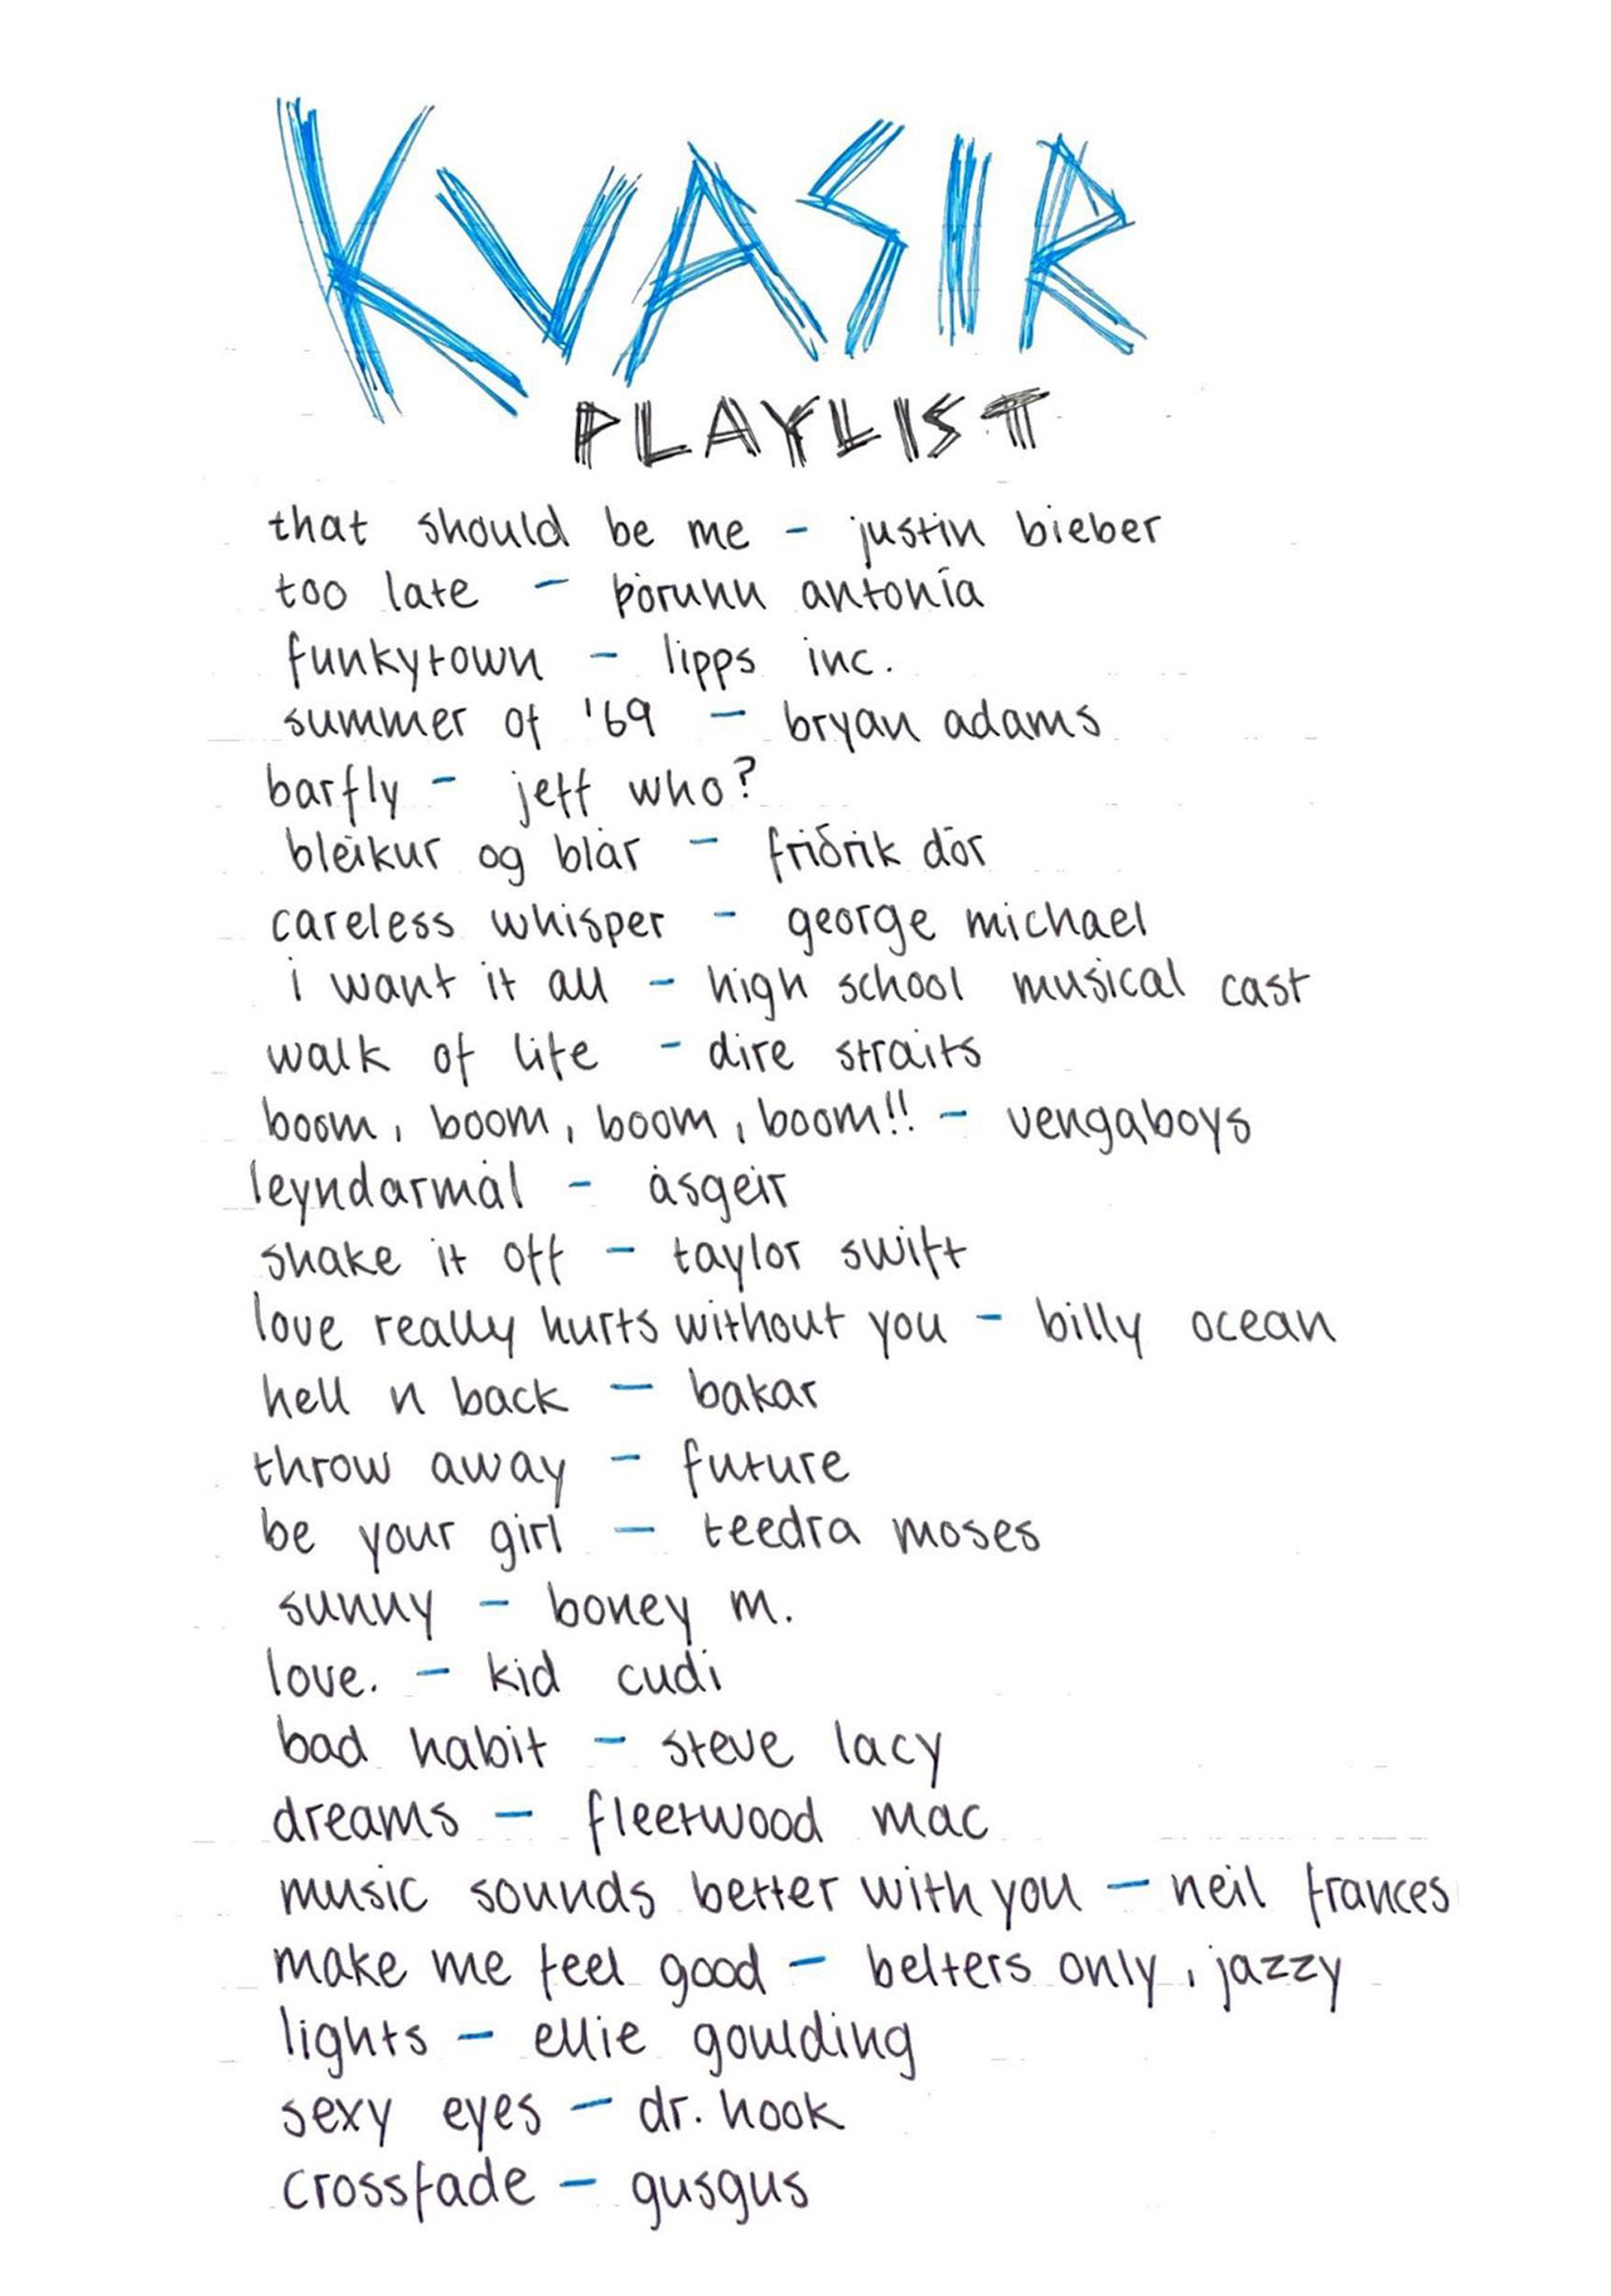 KVASIR
PLAYLIST
that should be me - justin bieber
too late - þórunn antonía
funkytown - lipps inc.
summer of '69 - bryan adams
barfly - jeff who?
bleikur og blár - friðrik dór
careless whisper - george michael
i want it all - high school musical cast
walk of life - dire straits
boom, boom, boom, boom!! - vengaboys
leyndarmál - ásgeir
shake it off - taylor swift
love really hurts without you - billy ocean
hell n back - bakar
throw away - future
be your girl - teedra moses
sunny - boney m.
love. - kid cudi
bad habit - steve lacy
dreams - fleetwood mac
music sounds better with you - neil frances
make me feel good - belters only, jazzy
lights - ellie goulding
sexy eyes - dr. hook
crossfade - gusgus